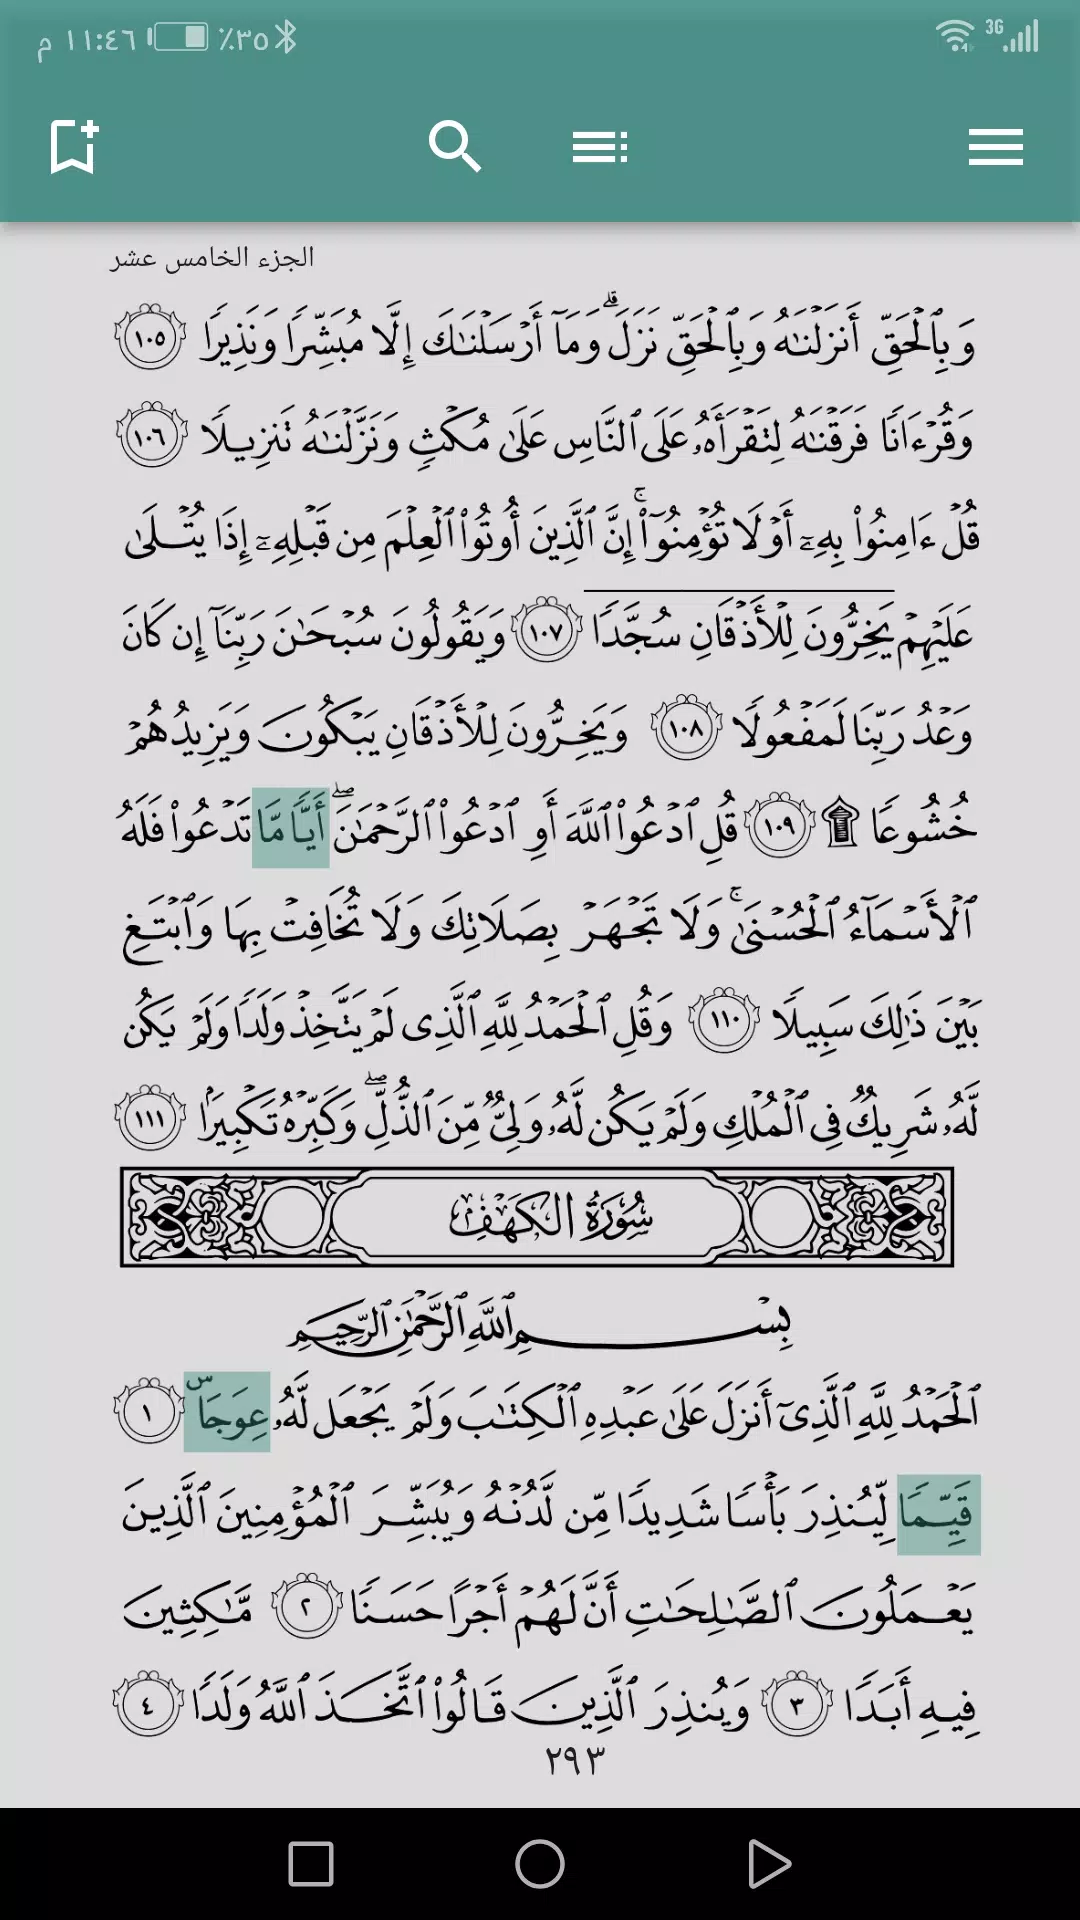 ١١:٤٦ م ٣٥٪ 3G
الجزء الخامس عشر
وَبِٱلْحَقِّ أَنزَلْنَٰهُ وَبِٱلْحَقِّ نَزَلَ ۗ وَمَآ أَرْسَلْنَٰكَ إِلَّا مُبَشِّرًا وَنَذِيرًا ١٠٥
وَقُرْءَانًا فَرَقْنَٰهُ لِتَقْرَأَهُۥ عَلَى ٱلنَّاسِ عَلَىٰ مُكْثٍ وَنَزَّلْنَٰهُ تَنزِيلًا ١٠٦
قُلْ ءَامِنُوا۟ بِهِۦٓ أَوْ لَا تُؤْمِنُوٓا۟ ۚ إِنَّ ٱلَّذِينَ أُوتُوا۟ ٱلْعِلْمَ مِن قَبْلِهِۦٓ إِذَا يُتْلَىٰ
عَلَيْهِمْ يَخِرُّونَ لِلْأَذْقَانِ سُجَّدًا ١٠٧ وَيَقُولُونَ سُبْحَٰنَ رَبِّنَآ إِن كَانَ
وَعْدُ رَبِّنَا لَمَفْعُولًا ١٠٨ وَيَخِرُّونَ لِلْأَذْقَانِ يَبْكُونَ وَيَزِيدُهُمْ
خُشُوعًا ۩ ١٠٩ قُلِ ٱدْعُوا۟ ٱللَّهَ أَوِ ٱدْعُوا۟ ٱلرَّحْمَٰنَ ۖ أَيًّا مَّا تَدْعُوا۟ فَلَهُ
ٱلْأَسْمَآءُ ٱلْحُسْنَىٰ ۚ وَلَا تَجْهَرْ بِصَلَاتِكَ وَلَا تُخَافِتْ بِهَا وَٱبْتَغِ
بَيْنَ ذَٰلِكَ سَبِيلًا ١١٠ وَقُلِ ٱلْحَمْدُ لِلَّهِ ٱلَّذِى لَمْ يَتَّخِذْ وَلَدًا وَلَمْ يَكُن
لَّهُۥ شَرِيكٌ فِى ٱلْمُلْكِ وَلَمْ يَكُن لَّهُۥ وَلِىٌّ مِّنَ ٱلذُّلِّ ۖ وَكَبِّرْهُ تَكْبِيرًۢا ١١١
سُورَةُ الكَهْفِ
بِسْمِ ٱللَّهِ ٱلرَّحْمَٰنِ ٱلرَّحِيمِ
ٱلْحَمْدُ لِلَّهِ ٱلَّذِىٓ أَنزَلَ عَلَىٰ عَبْدِهِ ٱلْكِتَٰبَ وَلَمْ يَجْعَل لَّهُۥ عِوَجَاۜ ١
قَيِّمًا لِّيُنذِرَ بَأْسًا شَدِيدًا مِّن لَّدُنْهُ وَيُبَشِّرَ ٱلْمُؤْمِنِينَ ٱلَّذِينَ
يَعْمَلُونَ ٱلصَّٰلِحَٰتِ أَنَّ لَهُمْ أَجْرًا حَسَنًا ٢ مَّٰكِثِينَ
فِيهِ أَبَدًا ٣ وَيُنذِرَ ٱلَّذِينَ قَالُوا۟ ٱتَّخَذَ ٱللَّهُ وَلَدًا ٤
٢٩٣